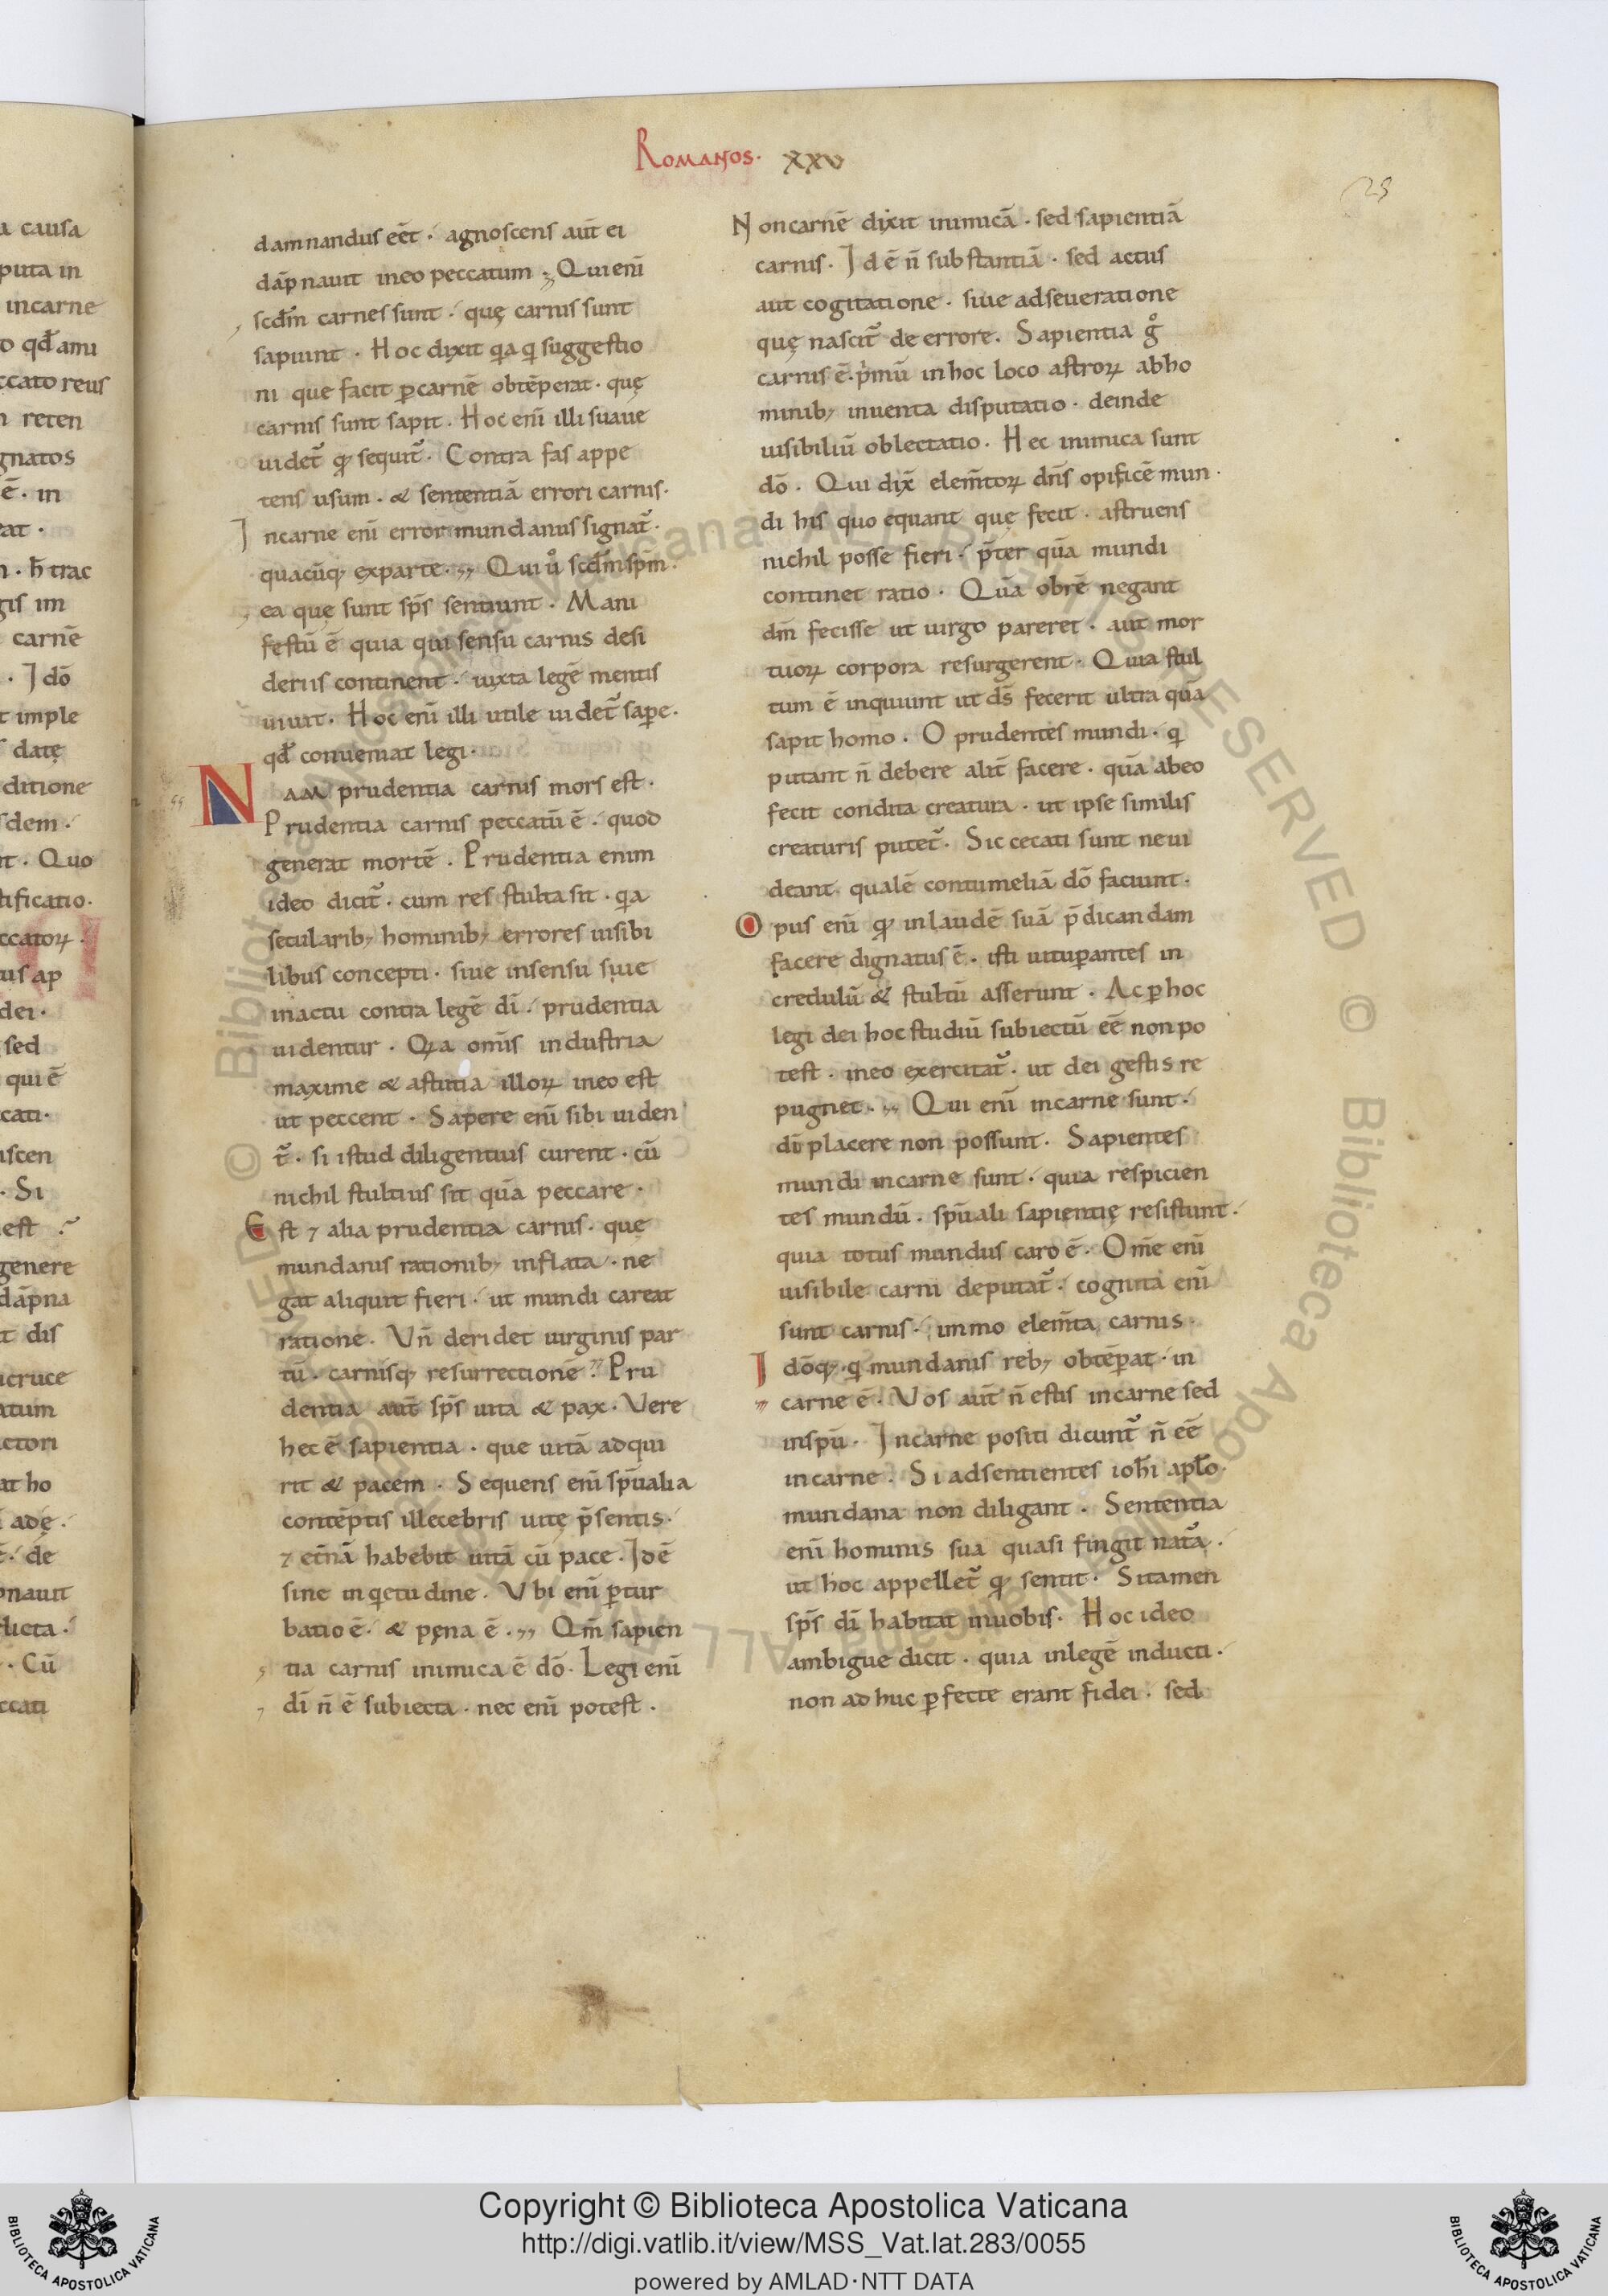 Romanos. XXV
25
a causa
puta in
incarne
o qđ ami
ccato reus
n reten
gnatos
ē. in
at .
n. h̄ trac
gis im
carnē
. Idō
t imple
s datę
ditione
sdem.
nt. Quo
tificatio.
ccatoꝝ.
us ap
dei.
sed
qui ē
cati.
iscen
. Si
est ?
genere
dāpna
t dis
cruce
atum
ctori
at ho
adę.
ē. de
pnauit
licta.
. Cū
ccati
damnandus eēt . agnoscens aūt ei
dāpnauit ineo peccatum . Qui eni̅
scđm carnes sunt . quę carnis sunt
sapiunt . Hoc dixit qa qi suggestio
ni que facit ꝑcarnē obtēperat . quę
carnis sunt sapit . Hoc eni̅ illi suaue
uidet᷑ qđ sequit᷑. Contra fas appe
tens usum . & sententiā errori carnis.
Incarne eni̅ error mundanus signat᷑.
quacūq; exparte. Qui u̾ scđm sp̄m.
ea quę sunt sp̄s sentiunt . Mani
festū ē quia qui sensu carnis desi
deriis continent . iuxta legē mentis
uiuit . Hoc eni̅ illi utile uidet᷑ saꝑe.
qđ conueniat legi.
NAM prudentia carnis mors est .
Prudentia carnis peccatū ē . quod
generat mortē . Prudentia enim
ideo dicit᷑ . cum res stulta sit . qa
secularib; hominib; errores uisibi
libus concepti . siue insensu siue
inactu contra legē di̅ . prudentia
uidentur . Qia om̄s industria
maxime & astutia illoꝝ ineo est
ut peccent . Sapere eni̅ sibi uiden
t᷑ . si istud diligentius curent . cū
nichil stultius sit quā peccare .
Est ⁊ alia prudentia carnis . quę
mundanis rationib; inflata . ne
gat aliquit fieri . ut mundi careat
ratione . Vn̄ deridet uirginis par
tū . carnisq; resurrectionē . Pru
dentia aūt sp̄s uita & pax . Vere
hec ē sapientia . que uitā adqui
rit & pacem . Sequens eni̅ sp̄ualia
contēptis illecebris uitę p̄sentis .
⁊ et̄nā habebit uitā cū pace . Id ē
sine inqietudine . Vbi eni̅ ꝑtur
batio ē . & pęna ē . Qm̄ sapien
tia carnis inimica ē dō . Legi eni̅
di̅ n̄ ē subiecta . nec eni̅ potest .
Noncarnē dixit inimicā . sed sapientiā
carnis . Id ē n̄ substantiā . sed actus
aut cogitatione . siue adseueratione
quę nascit᷑ de errore . Sapientia g̊
carnis ē . pi̾mū inhoc loco astroꝝ abho
minib; inuenta disputatio . deinde
uisibiliū oblectatio . Hec inimica sunt
dō . Qui dix̄ elem̄toꝝ dn̄s opificē mun
di his quo equant quę fecit . astruens
nichil posse fieri . p̄ter quā mundi
continet ratio . Quā obrē negant
dm̄ fecisse ut uirgo pareret . aut mor
tuoꝝ corpora resurgerent . Quia stul
tum ē inquiunt ut ds̄ fecerit ultra quā
sapit homo . O prudentes mundi . qi
putant n̄ debere alit̄ facere . quā abeo
fecit condita creatura . ut ipse similis
creaturis putet᷑. Sic cecati sunt ne ui
deant . qualē contumeliā dō faciunt .
Opus eni̅ qđ inlaudē suā p̄dicandam
facere dignatus ē . isti uituꝑantes in
credulū & stultū asserunt . Ac ꝑhoc
legi dei hoc studiū subiectū eē non po
test . ineo exercitat᷑ . ut dei gestis re
pugnet . Qui eni̅ incarne sunt .
di̅ placere non possunt . Sapientes
mundi incarne sunt . quia respicien
tes mundū . sp̄uali sapientię resistunt .
quia totus mundus caro ē . Om̄e eni̅
uisibile carni deputat᷑ . cognita eni̅
sunt carnis . immo elem̄ta carnis .
Idōq; qi mundanis reb; obtēꝑat . in
carne ē . Vos aūt n̄ estis incarne sed
insp̄u . Incarne positi dicunt᷑ n̄ eē
incarne . Si adsentientes ioh̄i apl̄o.
mundana non diligant . Sententia
eni̅ hominis sua quasi fingit nat᷑ā .
ut hoc appellet᷑ qđ sentit . Si tamen
sp̄s di̅ habitat inuobis . Hoc ideo
ambigue dicit . quia inlegē inducti .
non adhuc ꝑfecte erant fidei . sed
Copyright © Biblioteca Apostolica Vaticana
http://digi.vatlib.it/view/MSS_Vat.lat.283/0055
powered by AMLAD·NTT DATA
BIBLIOTECA APOSTOLICA VATICANA
BIBLIOTECA APOSTOLICA VATICANA